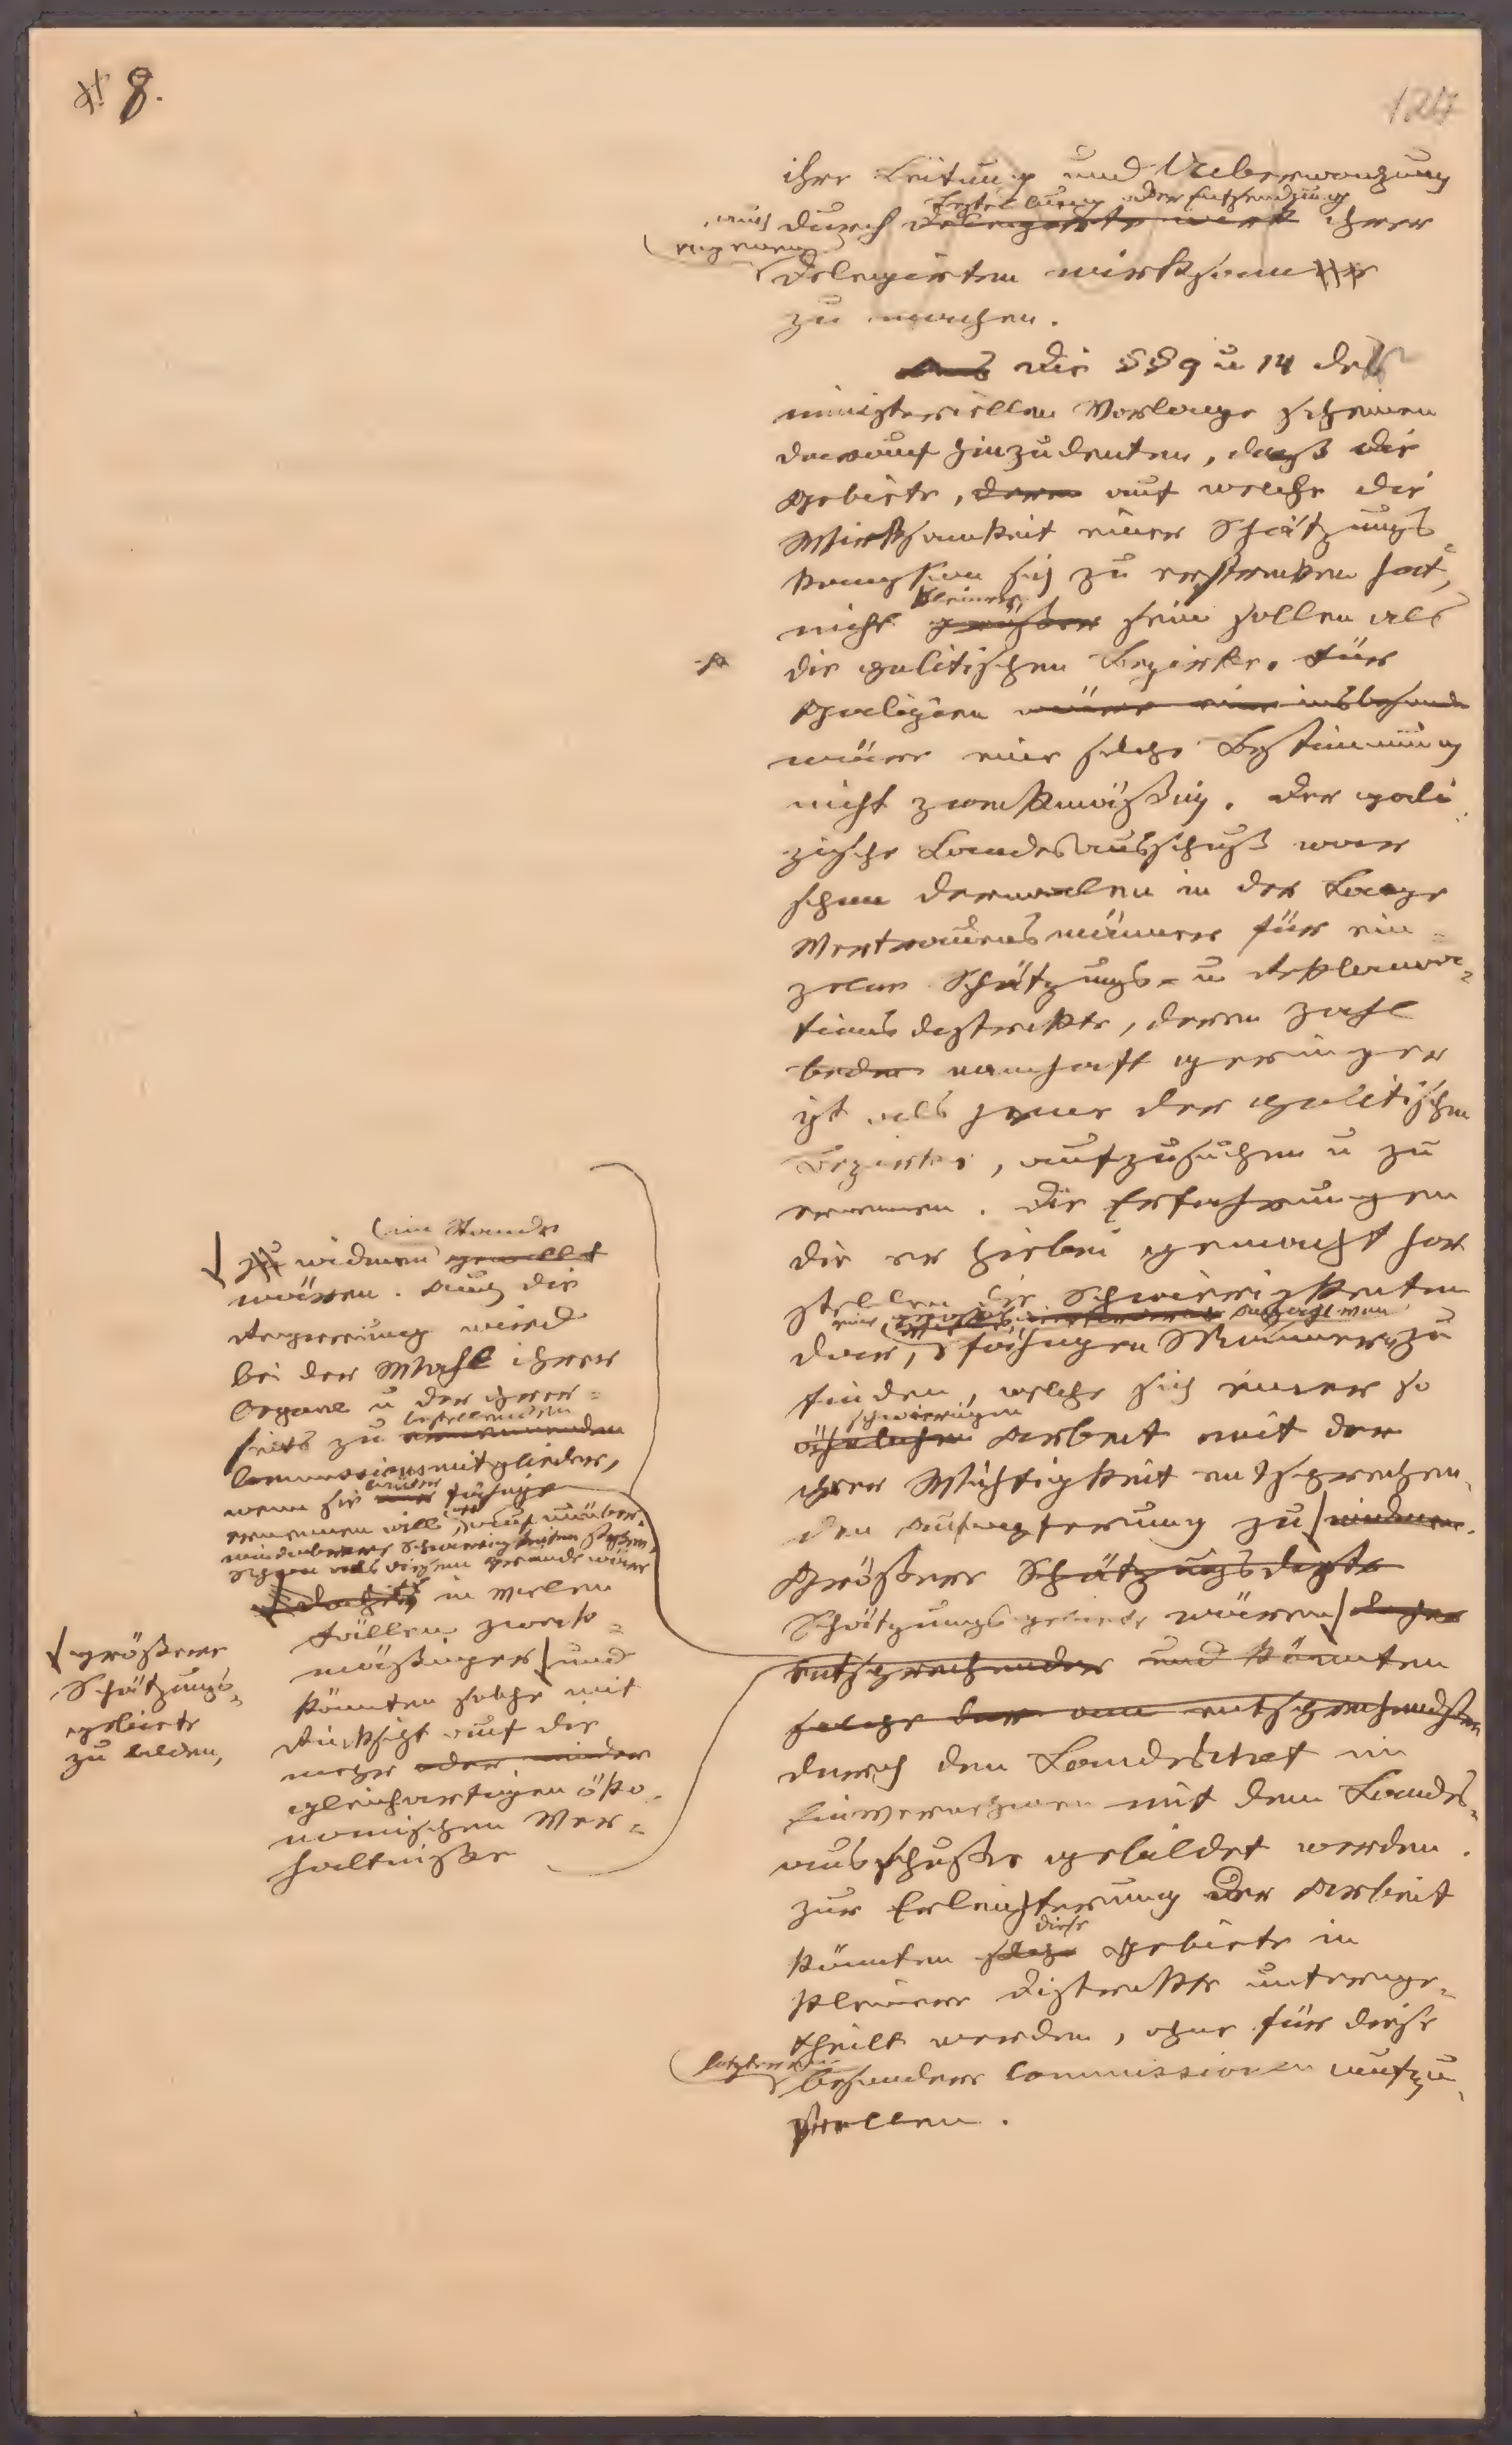 8.
124
ihre Leitung und Ueberwachung
Bestellung oder Entsendung
auch durch delegirte und ihrer
eigenen
Delegirten wirksam
zu machen.
Aus Die §§ 9 u 14 der
ministeriellen Vorlage scheinen
darauf hinzudeuten, daß die
Gebiete, deren auf welche die
Wirksamkeit einer Schätzungs
komission sich zu erstrecken hat,
kleiner
nicht größer sein sollen als
die politischen Bezirke. Für
Galizien wäre eine insbesonde
wäre eine solche Bestimmung
nicht zweckmäßig. Der gali
zische Landesausschuß war
schon dermalen in der Lage
Vertrauensmänner für ein=
zelne Schätzungs- u Reklama=
tionsdistrikte, deren Zahl
bedeu namhaft geringer
ist als jene der politischen
Bezirke, aufzusuchen u zu
ernennen. Die Erfahrungen
die er hiebei gemacht hat
stellen die Schwierigkeiten
eine Anzahl von
dar, fähigen Männern zu
finden, welche sich einer so
schwierigen
ähnlichen Arbeit mit der
ihrer Wichtigkeit entsprechen
den Aufopferung zu widmen.
Größere Schätzungsdistr
Schätzungsgebiete wären daher
entsprechender und könnten
solche am entsprechendsten
durch den Landeschef im
Einvernehmen mit dem Landes=
ausschuße gebildet werden.
Zur Erleichterung der Arbeit
diese
könnten solche Gebiete in
kleinere Distrikte unterge=
theilt werden, ohne für diese
letzteren
besondere Commissionen aufzu
stellen.
im Stande
zu widmen gewillt
wären. Auch die
Regierung wird
bei der Wahl ihrer
Organe u der ihrer=
bestellenden
seits zu ernennenden
Commissionsmitglieder,
wenn sie fähige
ernennen will, oft auf unüber=
windbare Schwierigkeiten stoßen.
Schon aus diesem Grunde wäre
in vielen
Fällen zweck=
mäßiger und
könnten solche mit
Rücksicht auf die
mehr oder minder
gleichartigen öko
nomischen Ver=
hältniße
größere
Schätzungs=
gebiete
zu bilden,